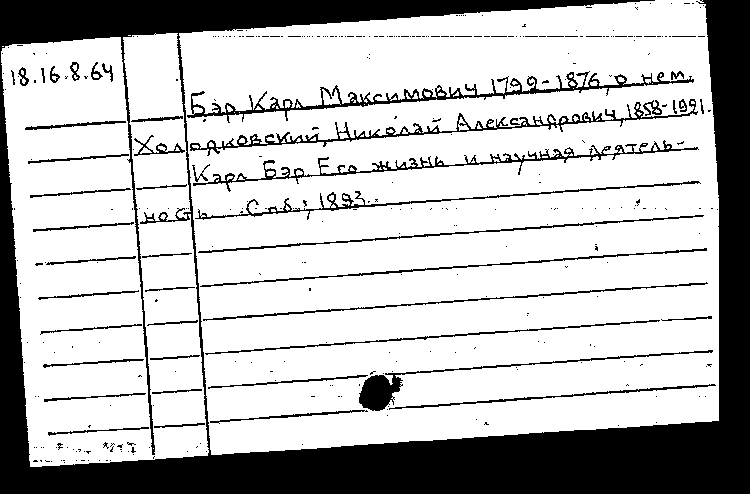 18.16.8.64
Бэр, Карл Максимович, 1792-1876, о нем.
Холодковский, Николай Александрович, 1858-1921.
Карл Бэр. Его жизнь и научная деятель-
ность. Спб., 1893.